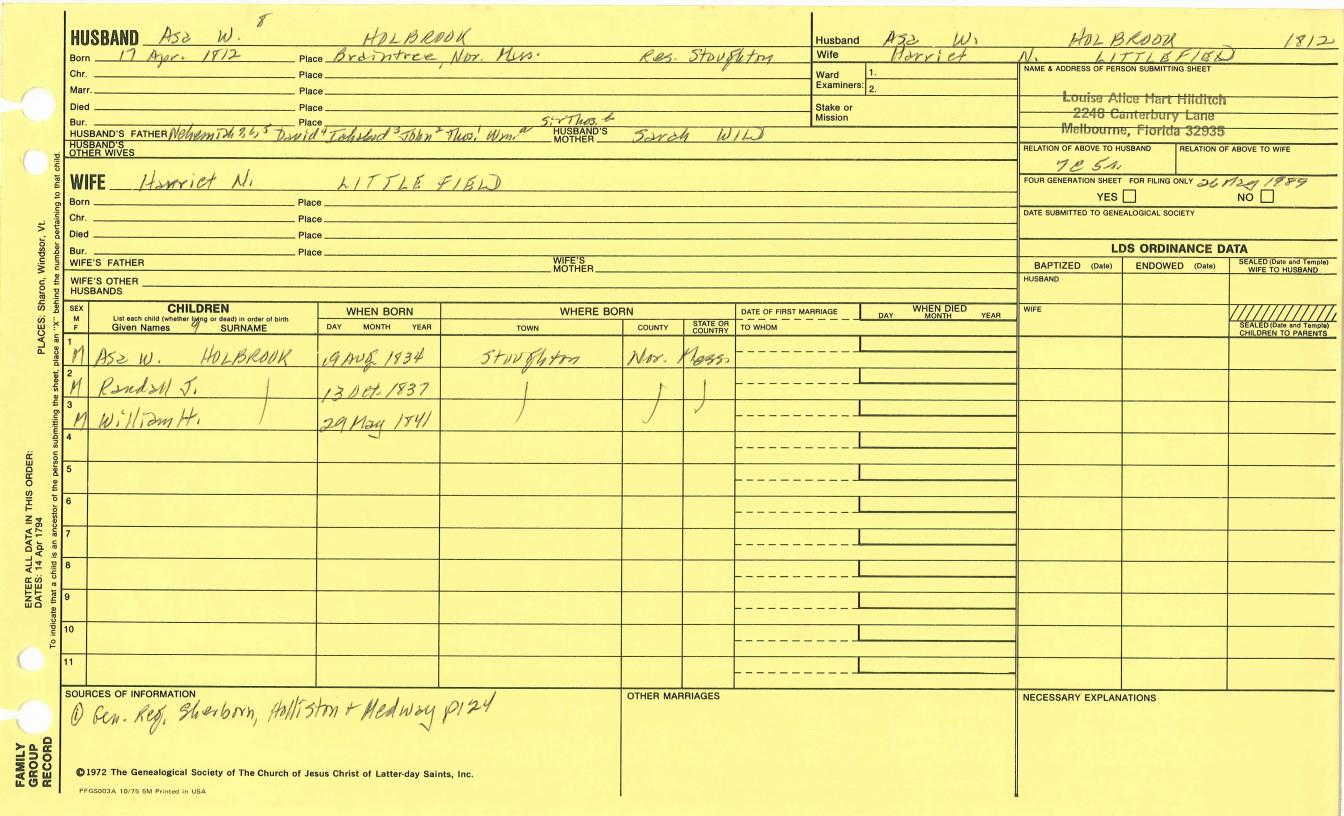 8
HUSBAND Asa W. HOLBROOK
Born 17 Apr. 1812 Place Braintree, Nor. Mass. Res. Stoughton
Chr. Place
Marr. Place
Died Place
Bur. Place Sir Thos. b
HUSBAND'S FATHER Nehemiah 7, 6, 5 David 4 3 John 2 Thos. 1 Wm. a HUSBAND'S MOTHER Sarah WILD
HUSBAND'S OTHER WIVES
WIFE Harriet N. LITTLEFIELD
Born Place
Chr. Place
Died Place
Bur. Place
WIFE'S FATHER WIFE'S MOTHER
WIFE'S OTHER HUSBANDS
Husband Asa W. HOLBROOK 1812
Wife Harriet N. LITTLEFIELD
Ward Examiners: 1.
2.
Stake or Mission
NAME & ADDRESS OF PERSON SUBMITTING SHEET
Louise Alice Hart Hilditch
2248 Canterbury Lane
Melbourne, Florida 32935
RELATION OF ABOVE TO HUSBAND RELATION OF ABOVE TO WIFE
7C 5r.
FOUR GENERATION SHEET FOR FILING ONLY 26 May 1989
YES NO
DATE SUBMITTED TO GENEALOGICAL SOCIETY
LDS ORDINANCE DATA
BAPTIZED (Date) ENDOWED (Date) SEALED (Date and Temple) WIFE TO HUSBAND
HUSBAND
WIFE
SEALED (Date and Temple) CHILDREN TO PARENTS
SEX M F
CHILDREN
List each child (whether living or dead) in order of birth
Given Names 9 SURNAME
WHEN BORN
DAY MONTH YEAR
WHERE BORN
TOWN COUNTY STATE OR COUNTRY
DATE OF FIRST MARRIAGE
TO WHOM
WHEN DIED
DAY MONTH YEAR
1 M Asa W. HOLBROOK 19 Aug 1834 Stoughton Nor. Mass.
2 M Randall J. 13 Oct. 1837
3 M William H. 29 May 1841
4
5
6
7
8
9
10
11
SOURCES OF INFORMATION
① Gen. Reg. Sherborn, Holliston + Medway p124
OTHER MARRIAGES
NECESSARY EXPLANATIONS
©1972 The Genealogical Society of The Church of Jesus Christ of Latter-day Saints, Inc.
PFGS003A 10/75 5M Printed in USA
FAMILY
GROUP
RECORD
ENTER ALL DATA IN THIS ORDER:
DATES: 14 Apr 1794 PLACES: Sharon, Windsor, Vt.
To indicate that a child is an ancestor of the person submitting the sheet, place an "X" behind the number pertaining to that child.